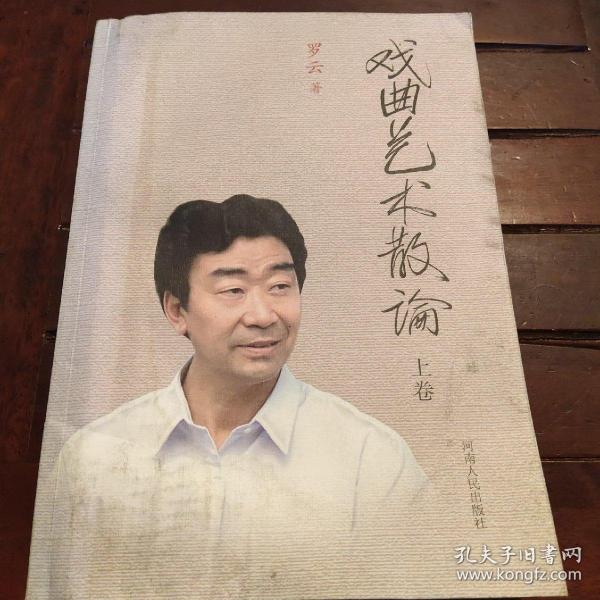 戏曲艺术散論
上卷
罗云 著
河南人民出版社
孔夫子旧書网
www.kongfz.com